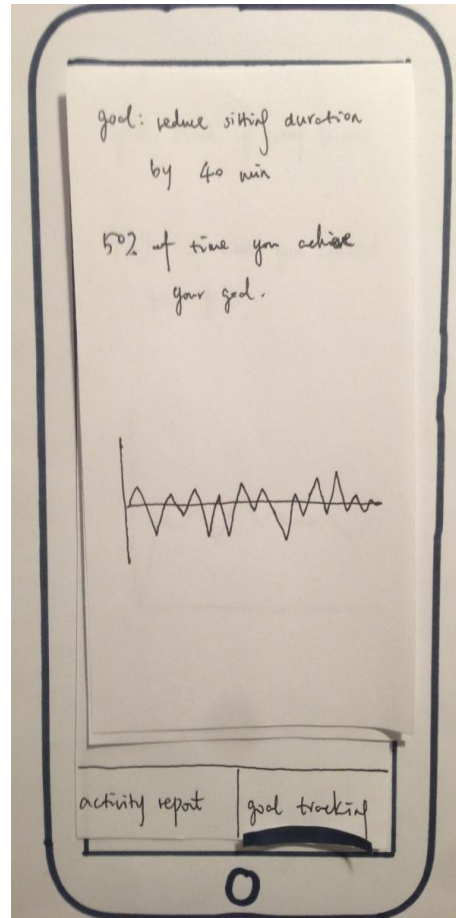 goal: reduce sitting duration
by 40 min
50% of time you achieve
your goal.
activity report
goal tracking